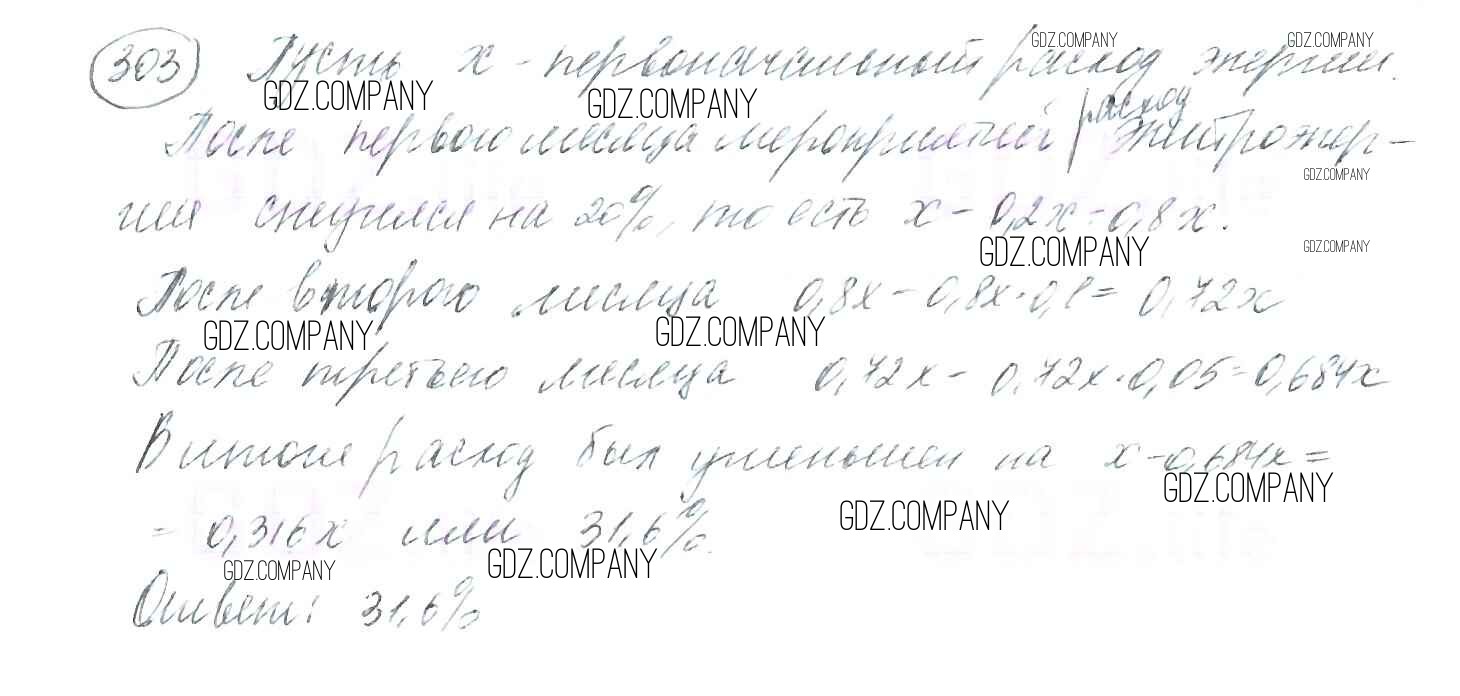 303 Пусть x - первоначальный расход энергии.
GDZ.COMPANY GDZ.COMPANY GDZ.COMPANY GDZ.COMPANY
расход
После первого месяца мероприятий электроэнер-
GDZ.COMPANY
гии снизился на 20%, то есть x - 0,2x = 0,8x.
GDZ.COMPANY GDZ.COMPANY
После второго месяца 0,8x - 0,8x · 0,1 = 0,72x
GDZ.COMPANY GDZ.COMPANY
После третьего месяца 0,72x - 0,72x · 0,05 = 0,684x
В итоге расход был уменьшен на x - 0,684x =
GDZ.COMPANY
= 0,316x или 31,6%.
GDZ.COMPANY
GDZ.COMPANY GDZ.COMPANY
Ответ: 31,6%